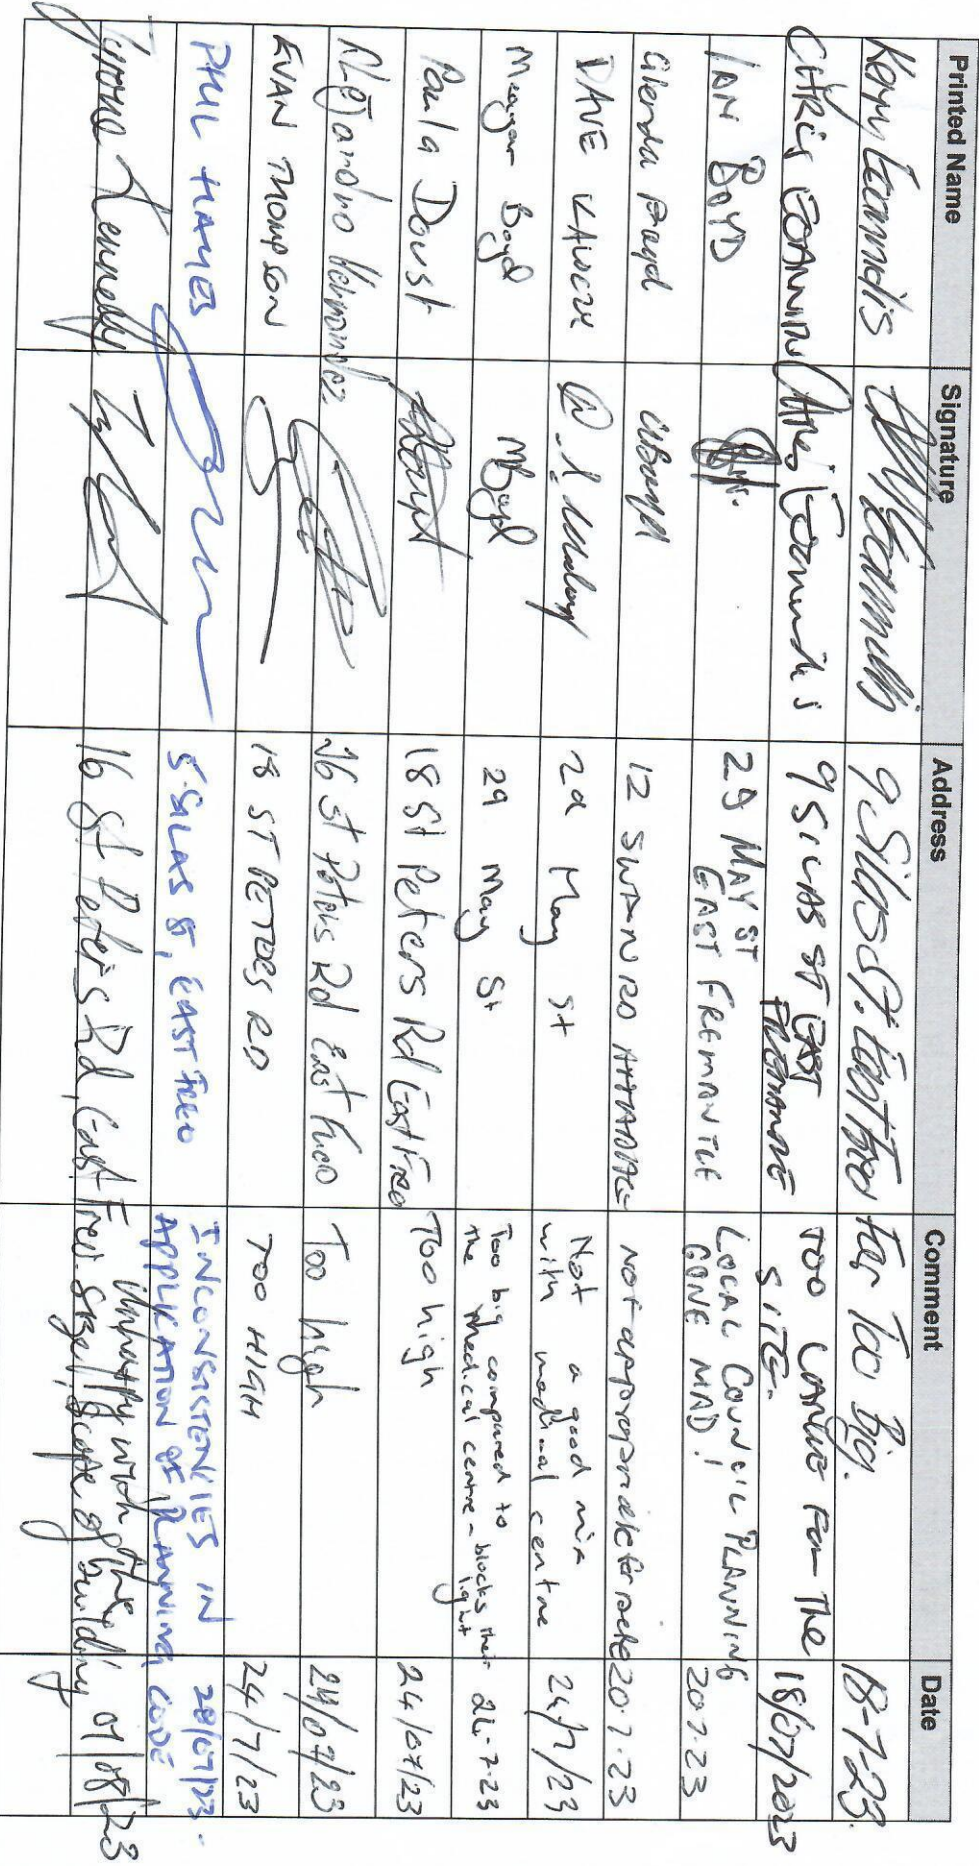 Printed Name Signature Address Comment Date
Kerry 9 Silas St. East Freo Far Too Big. 18-7-23.
CHRIS 9 SILAS ST EAST FREMANTLE TOO LARGE FOR THE SITE. 18/07/2023
IAN BOYD 29 MAY ST EAST FREMANTLE LOCAL COUNCIL PLANNING GONE MAD! 20.7.23
Glenda Boyd 12 SWAN RD ATTADALE Not appropriate for 20.7.23
DAVE 2a May St Not a good mix with medical centre 24/7/23
Meagan Boyd MBoyd 29 May St Too big compared to the medical centre - blocks their light 24-7-23
Paula Doust 18 St Peters Rd East Freo Too high 24/07/23
Alejandro Hernandez 16 St Peters Rd East Freo Too high 24/07/23
EVAN THOMPSON 18 ST PETERS RD TOO HIGH 24/7/23
PHIL HAMES 5 SILAS ST, EAST FREO INCONSISTENCIES IN APPLICATION OF PLANNING CODE 28/07/23.
Tyrone Kennedy 16 St Peters Rd, East Freo. Unhappy with the size/scope of building 01/08/23